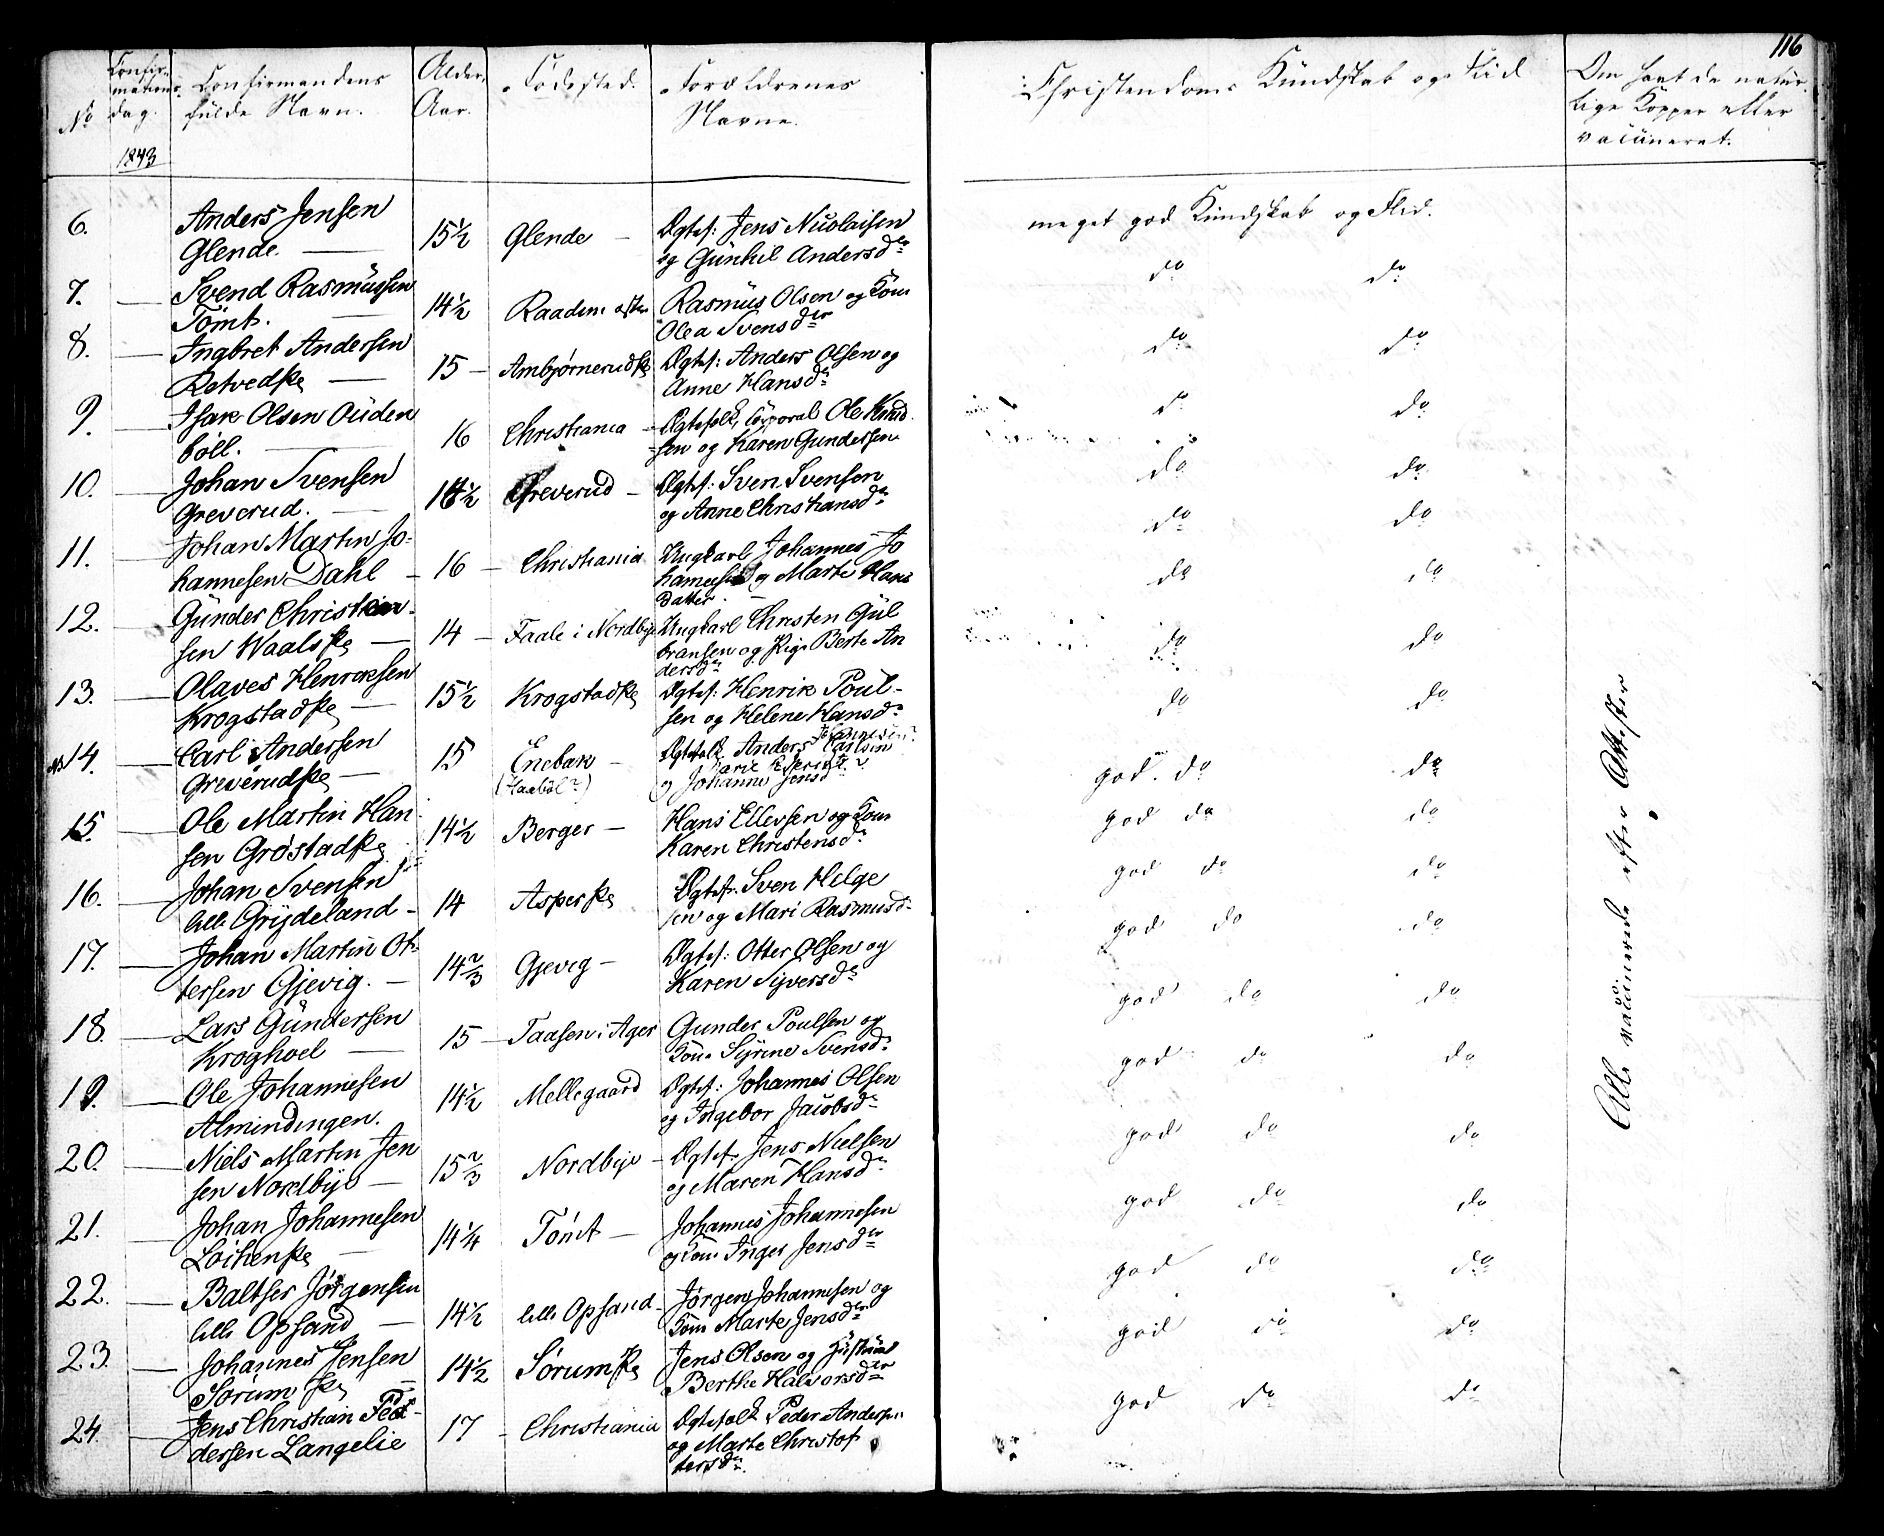 116
No
Confir-
mations-
dag.
1843
Confirmandens
fulde Navn.
Alder.
Aar.
Fødested.
Forældrenes
Navne.
Christendoms Kündskab og Flid
Om havt de natür-
lige Kopper eller
vaccineret.
6. Anders Jensen
Glende. 15½ Glende Ægtef: Jens Nicolaisen
og Günhil Andersdr
meget god Kündskab og Flid.
7. Svend Rasmüssen
Tomt. 14½ Raaden Rasmüs Olsen og Kone
Olea Svensdr
do do
8. Ingbret Andersen
Retvedske 15 Ambjørnerudske Ægtef: Anders Olsen og
Anne Hansdr
do do
9. Isak Olsen Ouden
böll. 16 Christiania Ægtefolk, Corporal Ole Knud
sen og Karen Gundersen
do do
10. Johan Svensen
Greverud. ½ Greverud Ægtef: Sven Svensen
og Anne Christiansdr
do do
11. Johan Martin Jo-
hannesen Dahl 16 Christiania Ungkarl Johannes Jo
hannesen og Marte Hans
datter.
do do
12. Günder Christian-
sen Waalske 14 Faale i Nordbye Ungkarl Christen Gül
bransen og Pige Berte An
dersdr
do do
13. Olaves Henriksen
Krogstadske 15½ Krogstadske Ægtef: Henrik Poul-
sen og Helene Hansdr
do do
do do
14. Carl Andersen
Greverudske 15 Enebak
Ægtefolk Anders Carlsen
og Johanne Jensdr
god do do
15. Ole Martin Han
sen Grøstadske 14½ Berger Hans Ellevsen og Kone
Karen Christensdr
god do do
16. Johan Svensen
lille Grydeland 14 Asperske Ægtef. Sven Helge
sen og Mari Rasmusdr
god do do
17. Johan Martin Ot-
tersen Gjevig. 14⅔ Gjevig Ægtef: Otter Olsen og
Karen Syversdr
god do do
18. Lars Gündersen
Kroghoel 15 Taasen i Ager Gunder Poulsen og
Kone Syrine Svensdr
god do do
19. Ole Johannesen
Almindingen. 14½ Mellegaard Ægtef: Johannes Olsen
og Ingebor Jacobsdr
god do do
20. Niels Martin Jen
sen Nordbye 15⅔ Nordbye Ægtef. Jens Nielsen
og Maren Hansdr
god do do
21. Johan Johannesen
Loihenske 14¼ Tomt Johannes Johannesen
og Kone Inger Jensdr
god do do
22. Baltser Jørgensen
lille Opsand 14½ lille Opsand Jørgen Johannesen og
Kone Marte Jensdr
god do do
23. Johannes Jensen
Sørum ske 14½ Sørumske Jens Olsen og Hustrue
Berthe Halvorsdr
god do do
24. Jens Christian Pe-
dersen Langelie 17 Christiania Ægtefolk Peder Andersen
og Marte Christof
fersdr.
god do do
Alle vaccinerede efter Attester